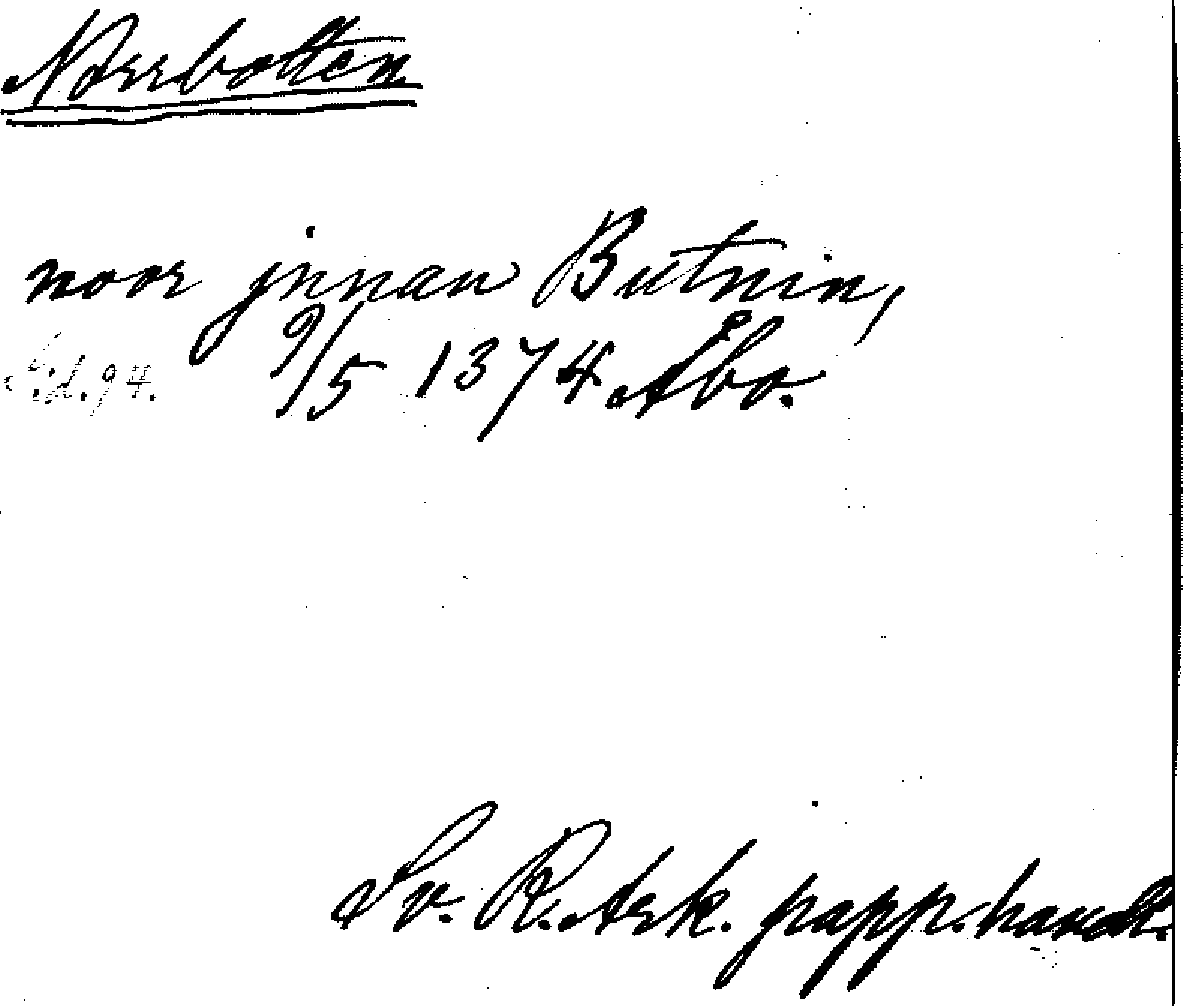 Norrbotten
noor jnnan Butnin,
9/5 1374 Åbo.
Sv. R. Ark. papp. handl.